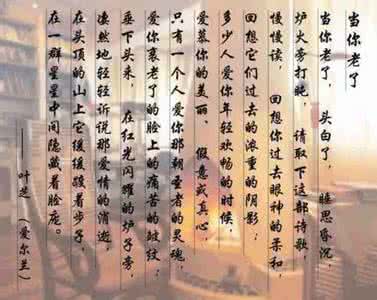 当你老了
当你老了，头白了，睡思昏沉，
炉火旁打盹，请取下这部诗歌，
慢慢读，回想你过去眼神的柔和，
回想它们过去的浓重的阴影；
多少人爱你年轻欢畅的时候，
爱慕你的美丽、假意或真心，
只有一个人爱你那朝圣者的灵魂，
爱你衰老了的脸上的痛苦的皱纹；
垂下头来，在红光闪耀的炉子旁
凄然地轻轻诉说那爱情的消逝，
在头顶的山上它缓缓踱着步子，
在一群星星中间隐藏着脸庞。
——叶芝（爱尔兰）